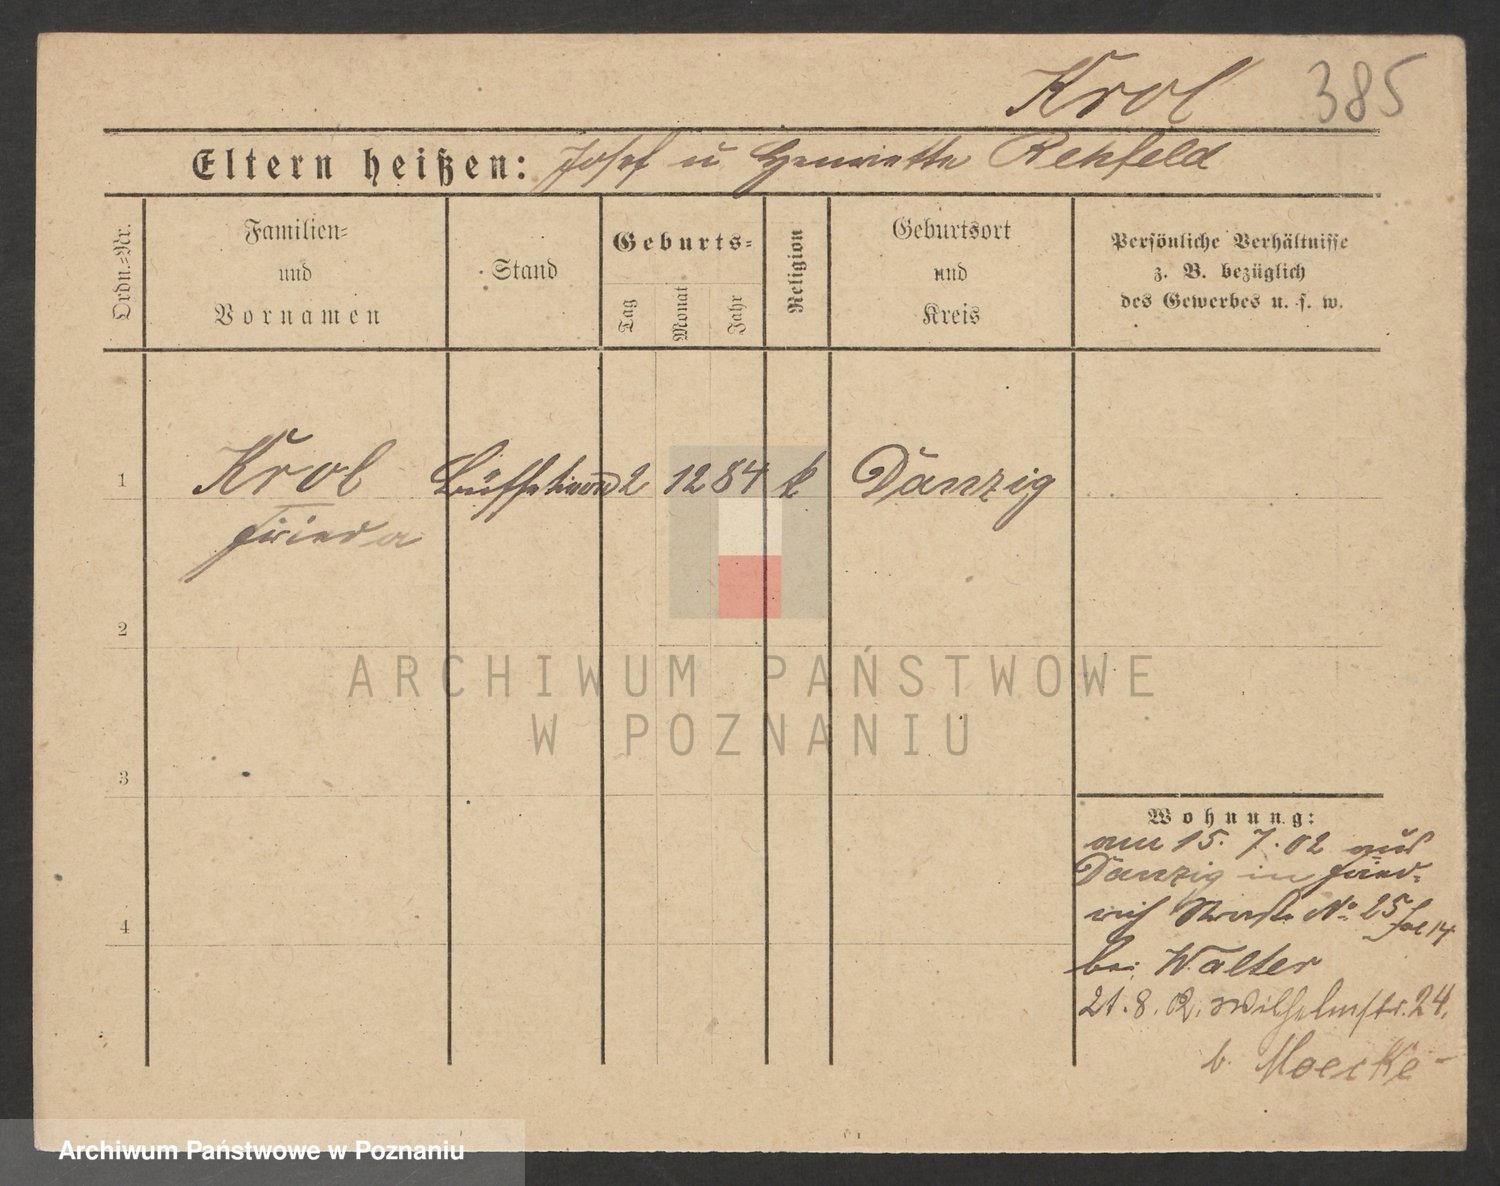 Krol 385
Eltern heißen: Josef u Henriette Rehfeld
Ordn.=Nr.
Familien=
und
Vornamen
Stand
Geburts=
Tag
Monat
Jahr
Religion
Geburtsort
und
Kreis
Persönliche Verhältnisse
z. B. bezüglich
des Gewerbes u. s. w.
1 Krol 2 12 84 k Danzig
Frieda
2
3
4
Wohnung:
am 15. 7. 02 aus
Danzig in Fried=
rich Straße No 25
bei Walter
21. 8. 02. Wilhelmstr. 24.
b. Moecke
ARCHIWUM PAŃSTWOWE
W POZNANIU
Archiwum Państwowe w Poznaniu